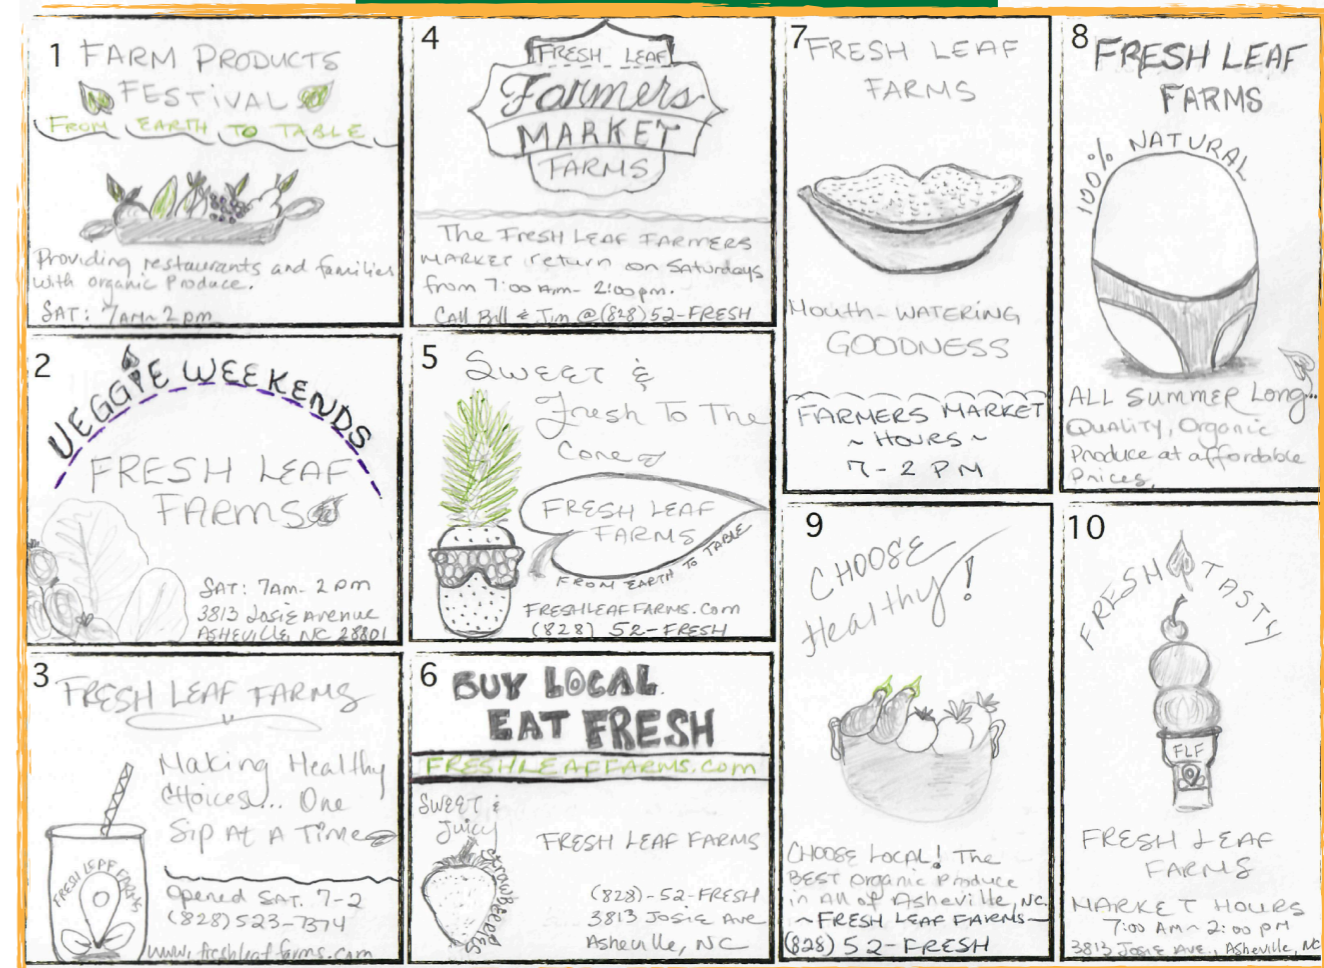 1
FARM PRODUCTS
FESTIVAL
FROM EARTH TO TABLE
Providing restaurants and families
with organic Produce.
SAT: 7AM-2pm
2
VEGGIE WEEKENDS
FRESH LEAF
FARMS
SAT: 7am-2pm
3813 Josie Avenue
ASHEVILLE NC 28801
3
FRESH LEAF FARMS
Making Healthy
Choices... One
Sip At A Time
FRESH LEAF FARMS
Opened SAT. 7-2
(828)523-7374
www.freshleaffarms.com
4
FRESH LEAF
Farmers
MARKET
FARMS
The FRESH LEAF FARMERS
MARKET return on Saturdays
from 7:00 Am- 2:00pm.
Call Bill & Jim @(828)52-FRESH
5
SWEET &
Fresh To The
Core
FRESH LEAF
FARMS
FROM EARTH TO TABLE
FRESHLEAFFARMS.com
(828) 52-FRESH
6
BUY LOCAL
EAT FRESH
FRESHLEAFFARMS.com
SWEET &
Juicy
Strawberries
FRESH LEAF FARMS
(828)-52-FRESH
3813 JOSIE AVE
Asheville, NC
7
FRESH LEAF
FARMS
MOUTH-WATERING
GOODNESS
FARMERS MARKET
~ HOURS ~
7-2 PM
8
FRESH LEAF
FARMS
100% NATURAL
ALL SUMMER Long...
QUALITY, Organic
Produce at affordable
Prices.
9
CHOOSE
Healthy!
CHOOSE LOCAL! The
BEST Organic Produce
in All of Asheville, NC.
~FRESH LEAF FARMS~
(828) 52-FRESH
10
FRESH TASTY
FLF
FRESH LEAF
FARMS
MARKET HOURS
7:00 AM~2:00 pm
3813 JOSIE AVE., Asheville, NC